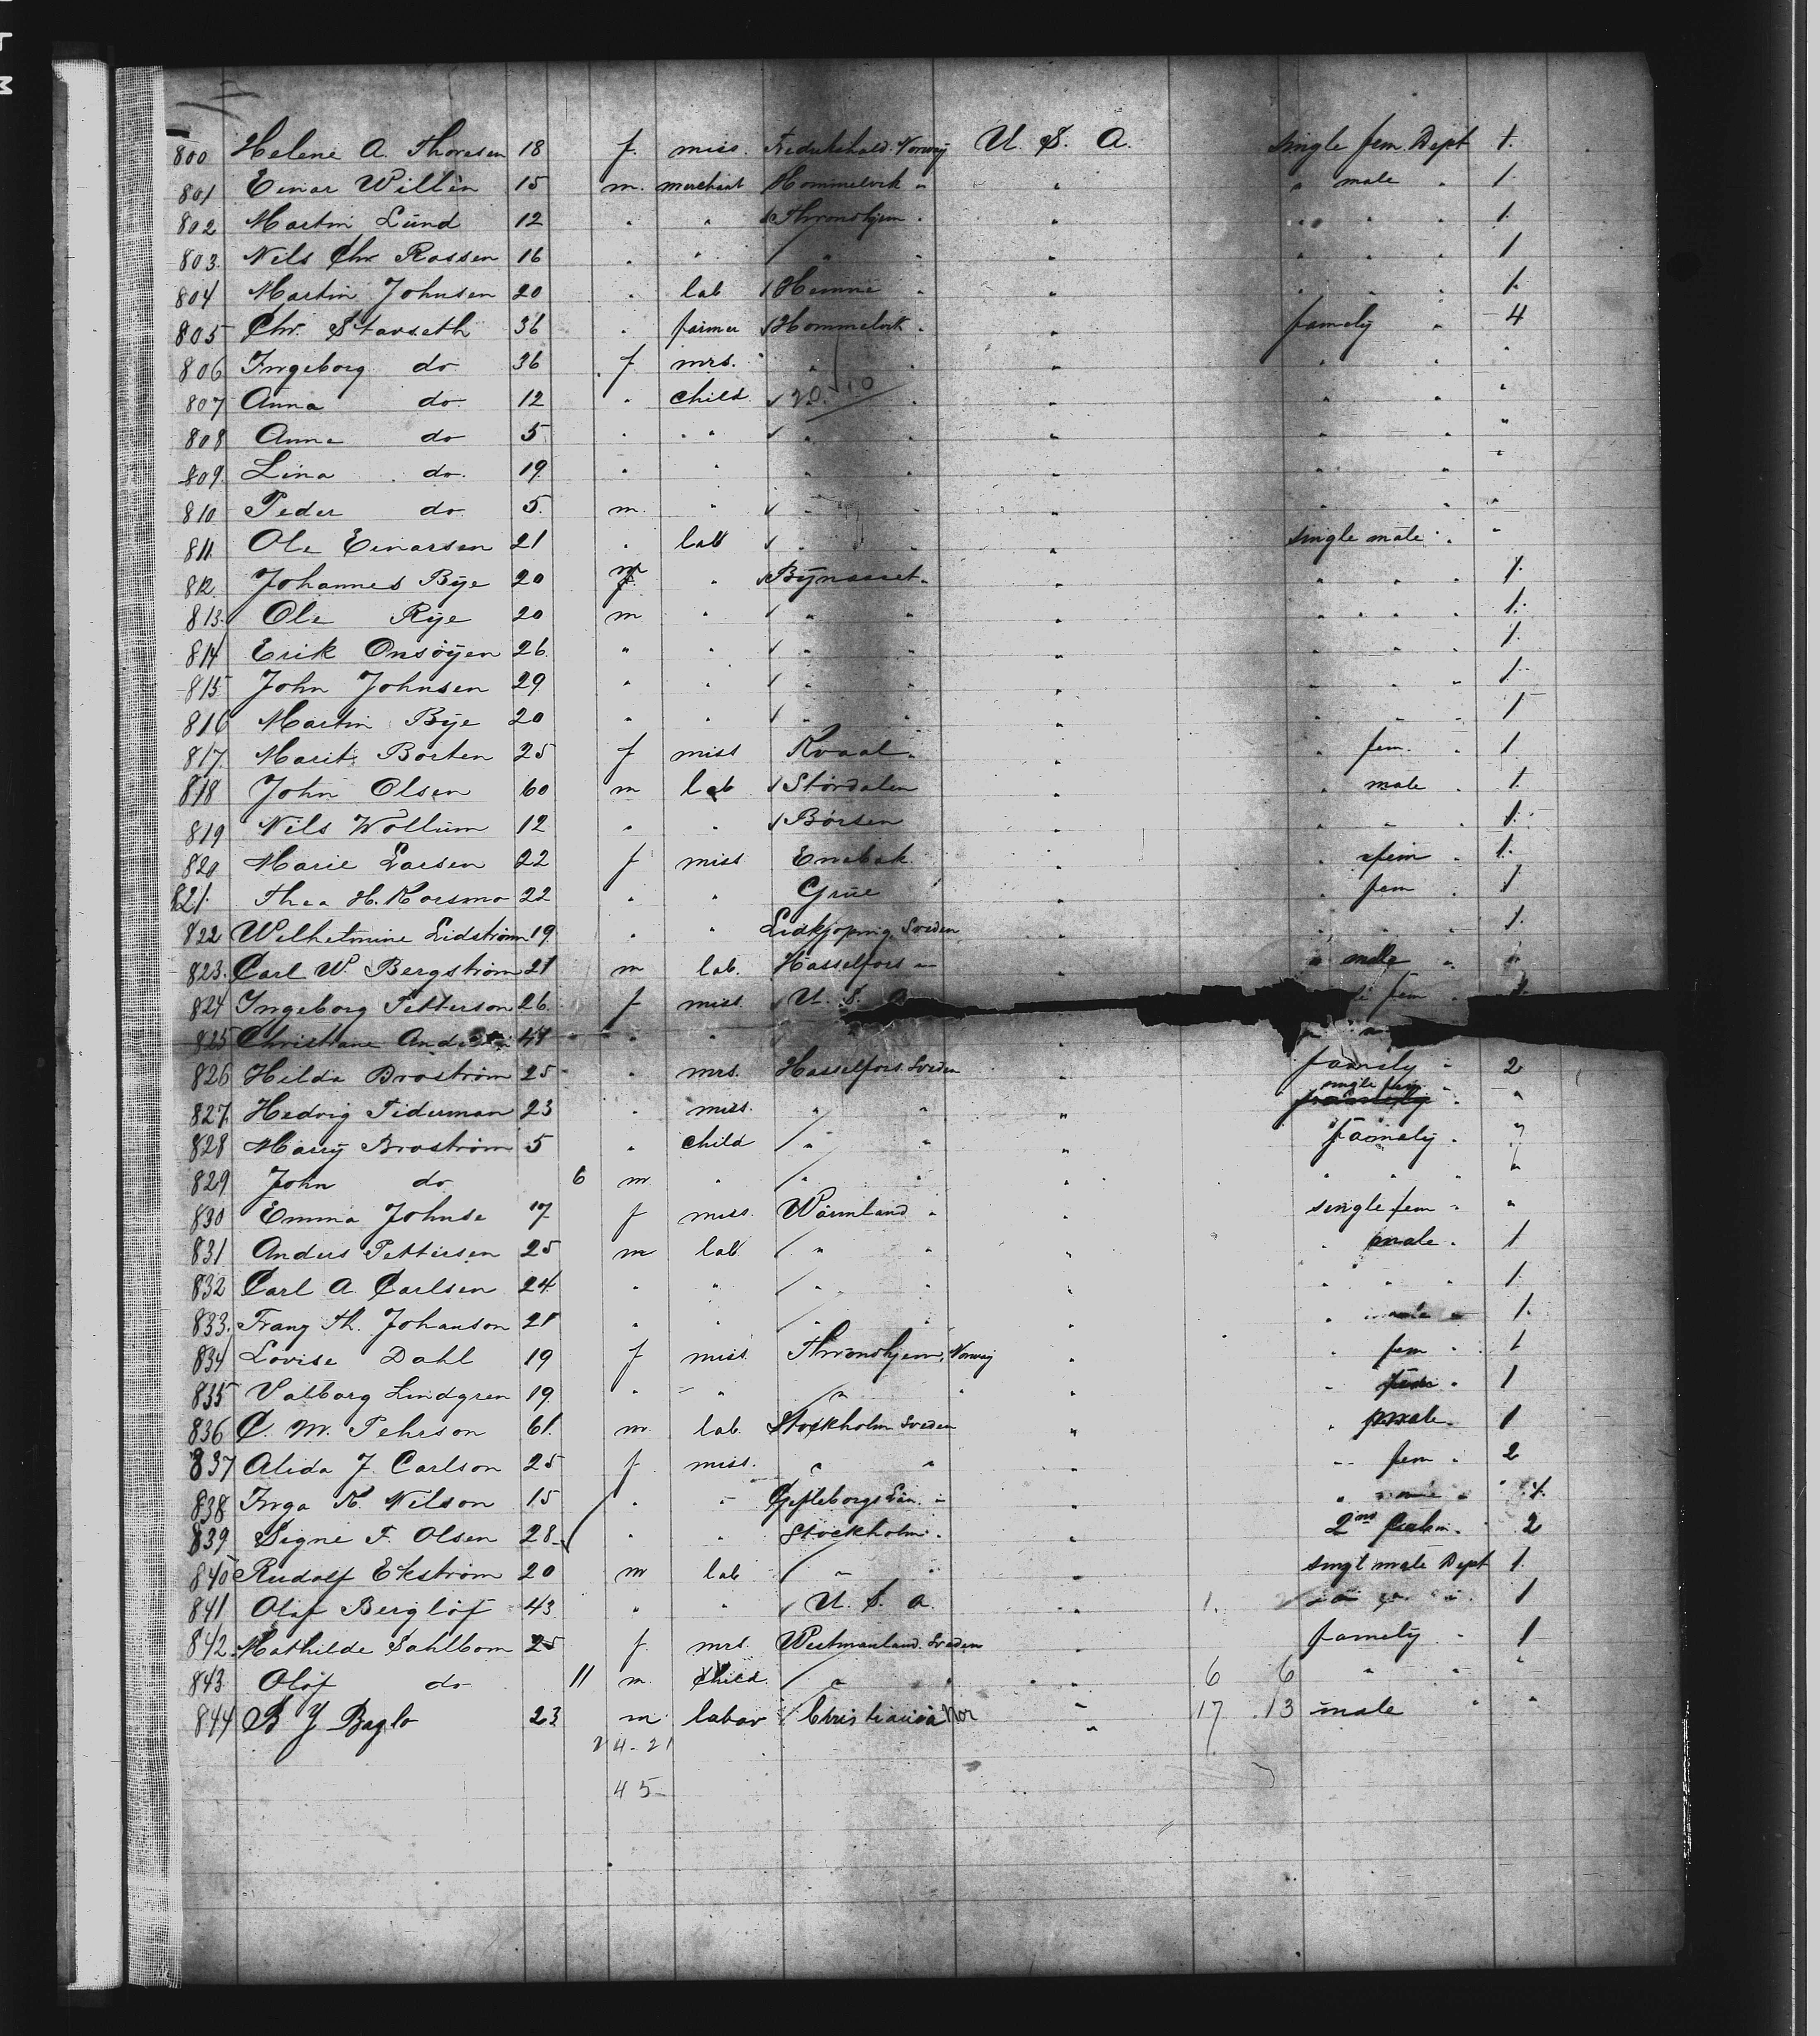 800 Helene A. Thoresen 18 f. miss. Fredrikshald. Norway U. S. A. Single fem. Dept 1.
801 Einar Willen 15 m. merchant Hommelvik " " " male " 1.
802 Martin Lund 12 " " Throndhjem " " " " " 1.
803. Nils Chr. Rossen 16 " " " " " " " " 1
804 Martin Johnsen 20 " lab Hemne " " " " " 1.
805 Chr. Stavseth 36 " farmer Hommelvik " " famely " 4
806 Ingeborg do 36 f mrs. " " " " " "
807 Anna do. 12 " child. 20. 10 " " " " "
808 Anne do 5 " " " " " " " "
809. Lina do. 19. " " " " " " " "
810 Peder do. 5. m. " " " " " " "
811. Ole Einarsen 21 " lab " " " single male " "
812. Johannes Bye 20 m " Bynesset " " " " " 1.
813. Ole Rye 20 m " " " " " " " 1.
814 Erik Onsöyen 26. " " " " " " " " 1.
815 John Johnsen 29 " " " " " " " " 1.
816 Martin Bye 20 " " " " " " " " 1
817 Marit Borten 25 f miss Kvaal " " " fem. " 1
818 John Olsen 60 m lab Stördalen " " male " 1.
819 Nils Wollum 12 " " Börsen " " " " 1.
820 Marie Larsen 22 f miss Enebak. " " fem " 1.
821. Thea H. Korsmo 22 " " Grue " " fem " 1
822 Wilhelmine Lidström 19. " " Lidkjöping, Sveden " " " " 1.
823. Carl W. Bergström 21 m lab. Hasselfors " " " male "
824 Ingeborg Petterson 26. f miss. U. S. A fem "
825 Christiane 47 " " " "
826 Hilda Broström 25 " mrs. Hasselfors. Sveden " famely " 2
827. Hedvig Tiderman 23 " miss. " " " single fem " "
828 Harry Broström 5 " child " " " famely. "
829 John do 6 m. " " " " " " " "
830 Emma Johnse 17 f miss. Wärmland " " single fem " "
831 Anders Pettersen 25 m lab. " " " " male. 1
832 Carl A. Carlsen 24. " " " " " " " " 1.
833. Franz Th. Johanson 21 " " " " " " " 1.
834 Lovise Dahl 19 f miss. Throndhjem, Norway " " fem " 1
835 Valborg Lindgren 19. " " " " " " " 1
836 C. M. Pehrson 61. m. lab. Stockholm Sveden " " male. 1
837 Alida J. Carlson 25 f. miss. " " " " fem " 2
838 Inga K. Nilson 15 " " Gefleborgs Län. " " "
839 Signe F. Olsen 28. " " Stockholm. " " 2nd 2
840 Rudolf Ekström 20 m lab " " " singl male Dept 1.
841 Olof Berglöf 43 " " U. S. A. " 1. 1
842. Mathilde Sahlbom 25 f. mrs. Westmanland. Sveden " famely " 1
843. Olof do 11 m. child. " " " 6 6 " " "
844 B Y Baglo 23. m labor Christiania Nor " 17 13 male " "
24-21
45